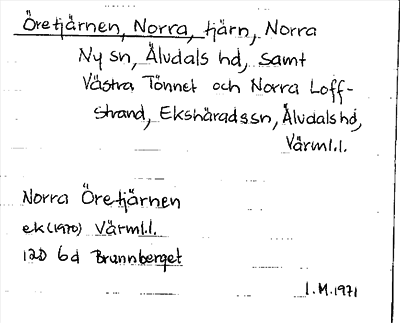 Öretjärnen, Norra, tjärn, Norra
Ny sn, Älvdals hd, samt
Västra Tönnet och Norra Loff-
strand, Ekshäradssn, Älvdals hd,
Värml.l.
Norra Öretjärnen
ek (1970) Värml.l.
12D 6d Brunnberget
I.M. 1971